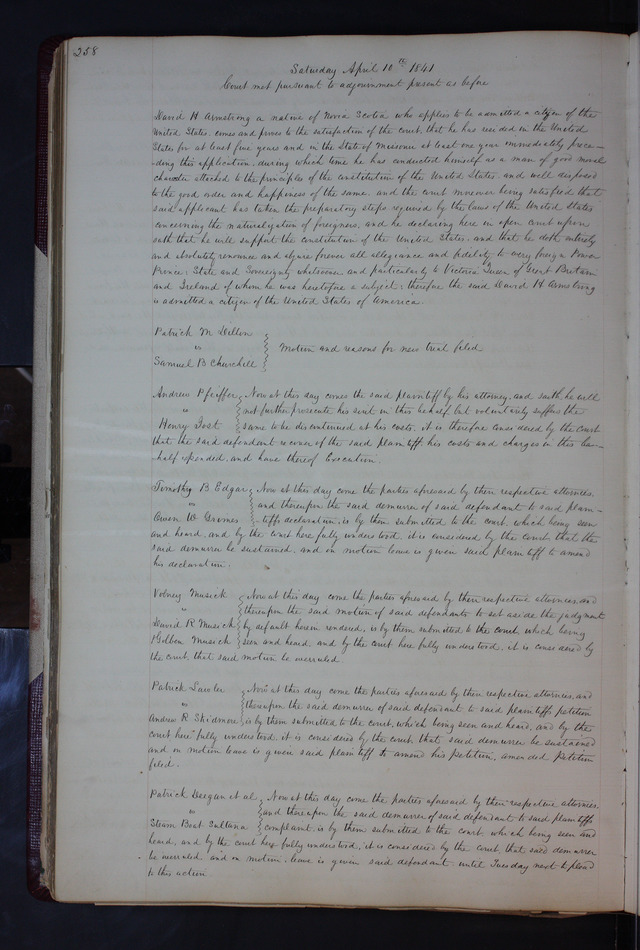 258
Saturday April 10th 1841
Court met pursuant to adjournment present as before
David H Armstrong a native of Nova Scotia who applies to be admitted a citizen of the
United States, comes and proves to the satisfaction of the court, that he has resided in the United
States for at least five years and in the State of Missouri at least one year immediately prece-
-ding this application, during which time he has conducted himself as a man of good moral
character attached to the principles of the constitution of the United States, and well disposed
to the good order and happiness of the same, and the court moreover being satisfied that
said applicant has taken the preparatory steps required by the laws of the United States
concerning the naturalization of foreigners, and he declaring here in open court upon
oath that he will support the constitution of the United States, and that he doth entirely
and absolutely renounce and abjure forever all allegiance and fidelity to every foreign Power
Prince, State and Sovereignty whatsoever and particularly to Victoria Queen of Great Britain
and Ireland of whom he was heretofore a subject; therefore the said David H Armstrong
is admitted a citizen of the United States of America.
Patrick M Dillon
vs
Samuel B Churchill
Motion and reasons for new trial filed
Andrew Pfeiffer Now at this day comes the said plaintiff by his attorney, and saith he will
vs not further prosecute his suit in this behalf but voluntarily suffers the
Henry Jost same to be discontinued at his costs, it is therefore considered by the court
that the said defendant recover of the said plaintiff his costs and charges in this be-
-half expended, and have thereof Execution.
Timothy B Edgar Now at this day come the parties aforesaid by their respective attornies,
vs and thereupon the said demurrer of said defendant to said plain-
Owen W Grimes -tiffs declaration, is by them submitted to the court, which being seen
and heard, and by the court here fully understood, it is considered by the court that the
said demurrer be sustained, and on motion leave is given said plaintiff to amend
his declaration.
Volney Musick Now at this day come the parties aforesaid by their respective attornies, and
vs thereupon the said motion of said defendants to set aside the judgment
David R Musick by default herein rendered, is by them submitted to the court, which being
Musick seen and heard, and by the court here fully understood, it is considered by
the court, that said motion be overruled
Patrick Lawler Now at this day come the parties aforesaid by their respective attornies, and
vs thereupon the said demurrer of said defendant to said plaintiffs petition
Andrew R Skidmore is by them submitted to the court, which being seen and heard, and by the
court here fully understood, it is considered by the court, that said demurrer be sustained
and on motion leave is given said plaintiff to amend his petition, amended petition
filed.
Patrick Deegan et al Now at this day come the parties aforesaid by their respective attornies,
vs and thereupon the said demurrer of said defendant to said plaintiffs
Steam Boat Sultana complaint, is by them submitted to the court, which being seen and
heard, and by the court here fully understood, it is considered by the court, that said demurrer
be overruled and on motion, leave is given said defendant until Tuesday next to plead
to this action